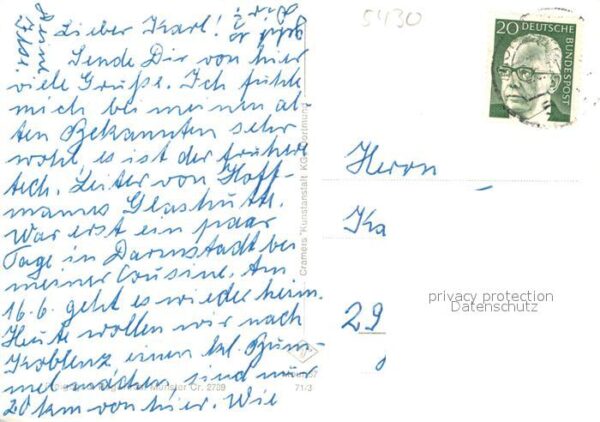 Lieber Karl!
Sende Dir von hier
viele Grüße. Ich fühle
mich bei meinen al-
ten Bekannten sehr
wohl, es ist der frühere
tech. Leiter von Hoff-
manns Glashütte.
War erst ein paar
Tage in Darmstadt bei
meiner Cousine. Am
16.6. geht es wieder heim.
Heute wollen wir nach
Koblenz einen kl. Bum-
mel machen, sind nur
20 km von hier. Wie
geht es
Dir?
Deine
5430
20 DEUTSCHE
BUNDESPOST
Herrn
Ka
29
privacy protection
Datenschutz
Cramers Kunstanstalt KG, Dortmund
Münster Cr. 2739
71/3